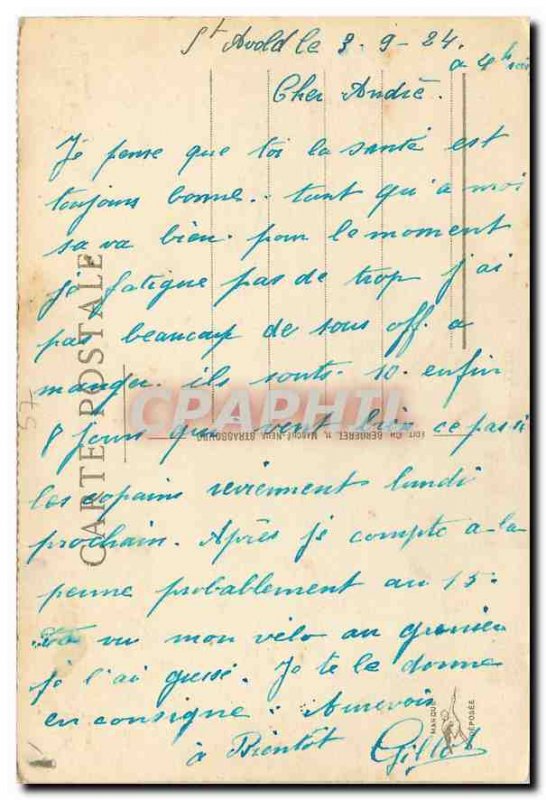 St Avold le 3-9-24.
a 4h
Cher André.
Je pense que toi la santé est
toujours bonne.. tant qu'a moi
sa va bien. pour le moment
je fatigue pas de trop j'ai
pas beaucoup de sous off. a
manger. ils sonts. 10. enfin
8 jours qui vont bien ce passé
les copains reviennent lundi
prochain. Après je compte a la
perme probablement au 15.
vu mon vélo au grenier
je l'ai
Je te le donne
en consigne. Aurevoir
à Bientot Gillot
CARTE POSTALE
57
CPARAMA
EDIT. CH. BERGERET, STRASBOURG
MARQUE DÉPOSÉE